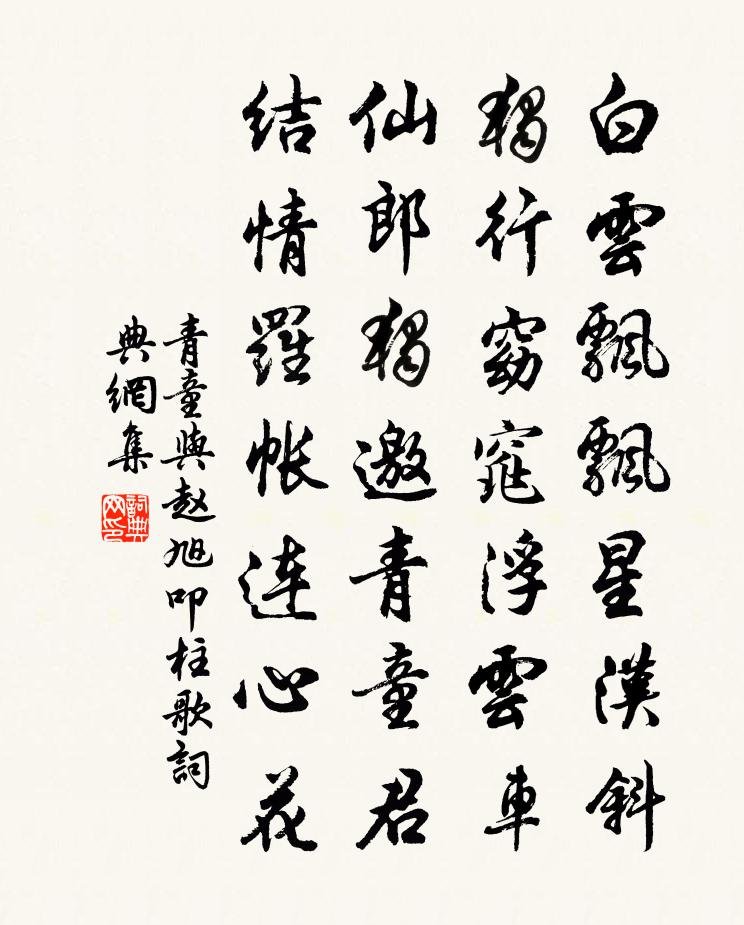 白雲飄飄星漢斜
獨行窈窕浮雲車
仙郎獨邀青童君
结情羅帐连心花
青童與赵旭叩柱歌
詞典網集
詞典网印